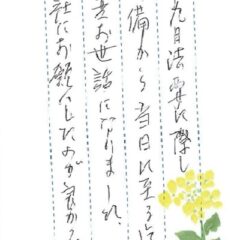 九日法要に際し
備から当日に至るまで
お世話になりました。
社にお願いしたのが良かった